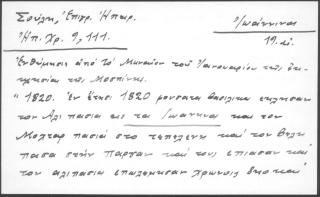 Σούλη, Ἐπιγρ. Ἠπειρ. Ἰωάννινα
Ἠπ. Χρ. 9, 111. 19. αἰ.
Ἐνθύμησις ἀπό το Μηναῖον τοῦ Ἰανουαρίου τῆς ἐκ-
κλησίας τῆς Μοσπίνης.
"1820. ἐν ἔτησι 1820 βασιλικα εκλησαν
τον Αλι πασια εις τα Ιωανινα και τον
Μοχταρ πασιά στο τεπελενη καί τον Βελη
πασα στήν Παργαν καί τους επιασαν καί
τον αλιπασια επωλεμησαν χρωνους δηο καί